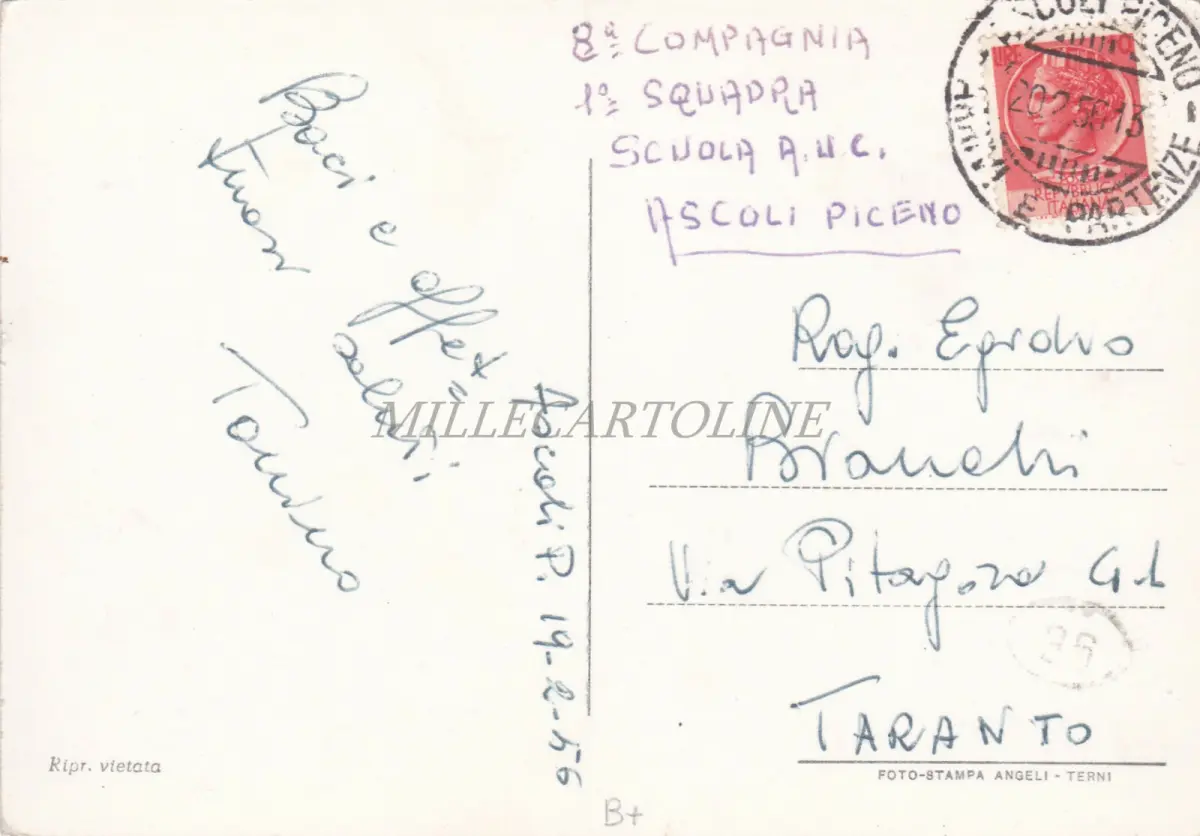 8ª COMPAGNIA
1ª SQUADRA
SCUOLA A.U.C.
ASCOLI PICENO
ASCOLI PICENO
PARTENZE
20.2.56.13
LIRE
REPUBBLICA
ITALIANA
Baci e affet
tuosi saluti
Tonino
Ascoli P. 19-2-56
Rag. Egidio
Bianchi
Via Pitagora
TARANTO
MILLECARTOLINE
Ripr. vietata
FOTO-STAMPA ANGELI - TERNI
B+